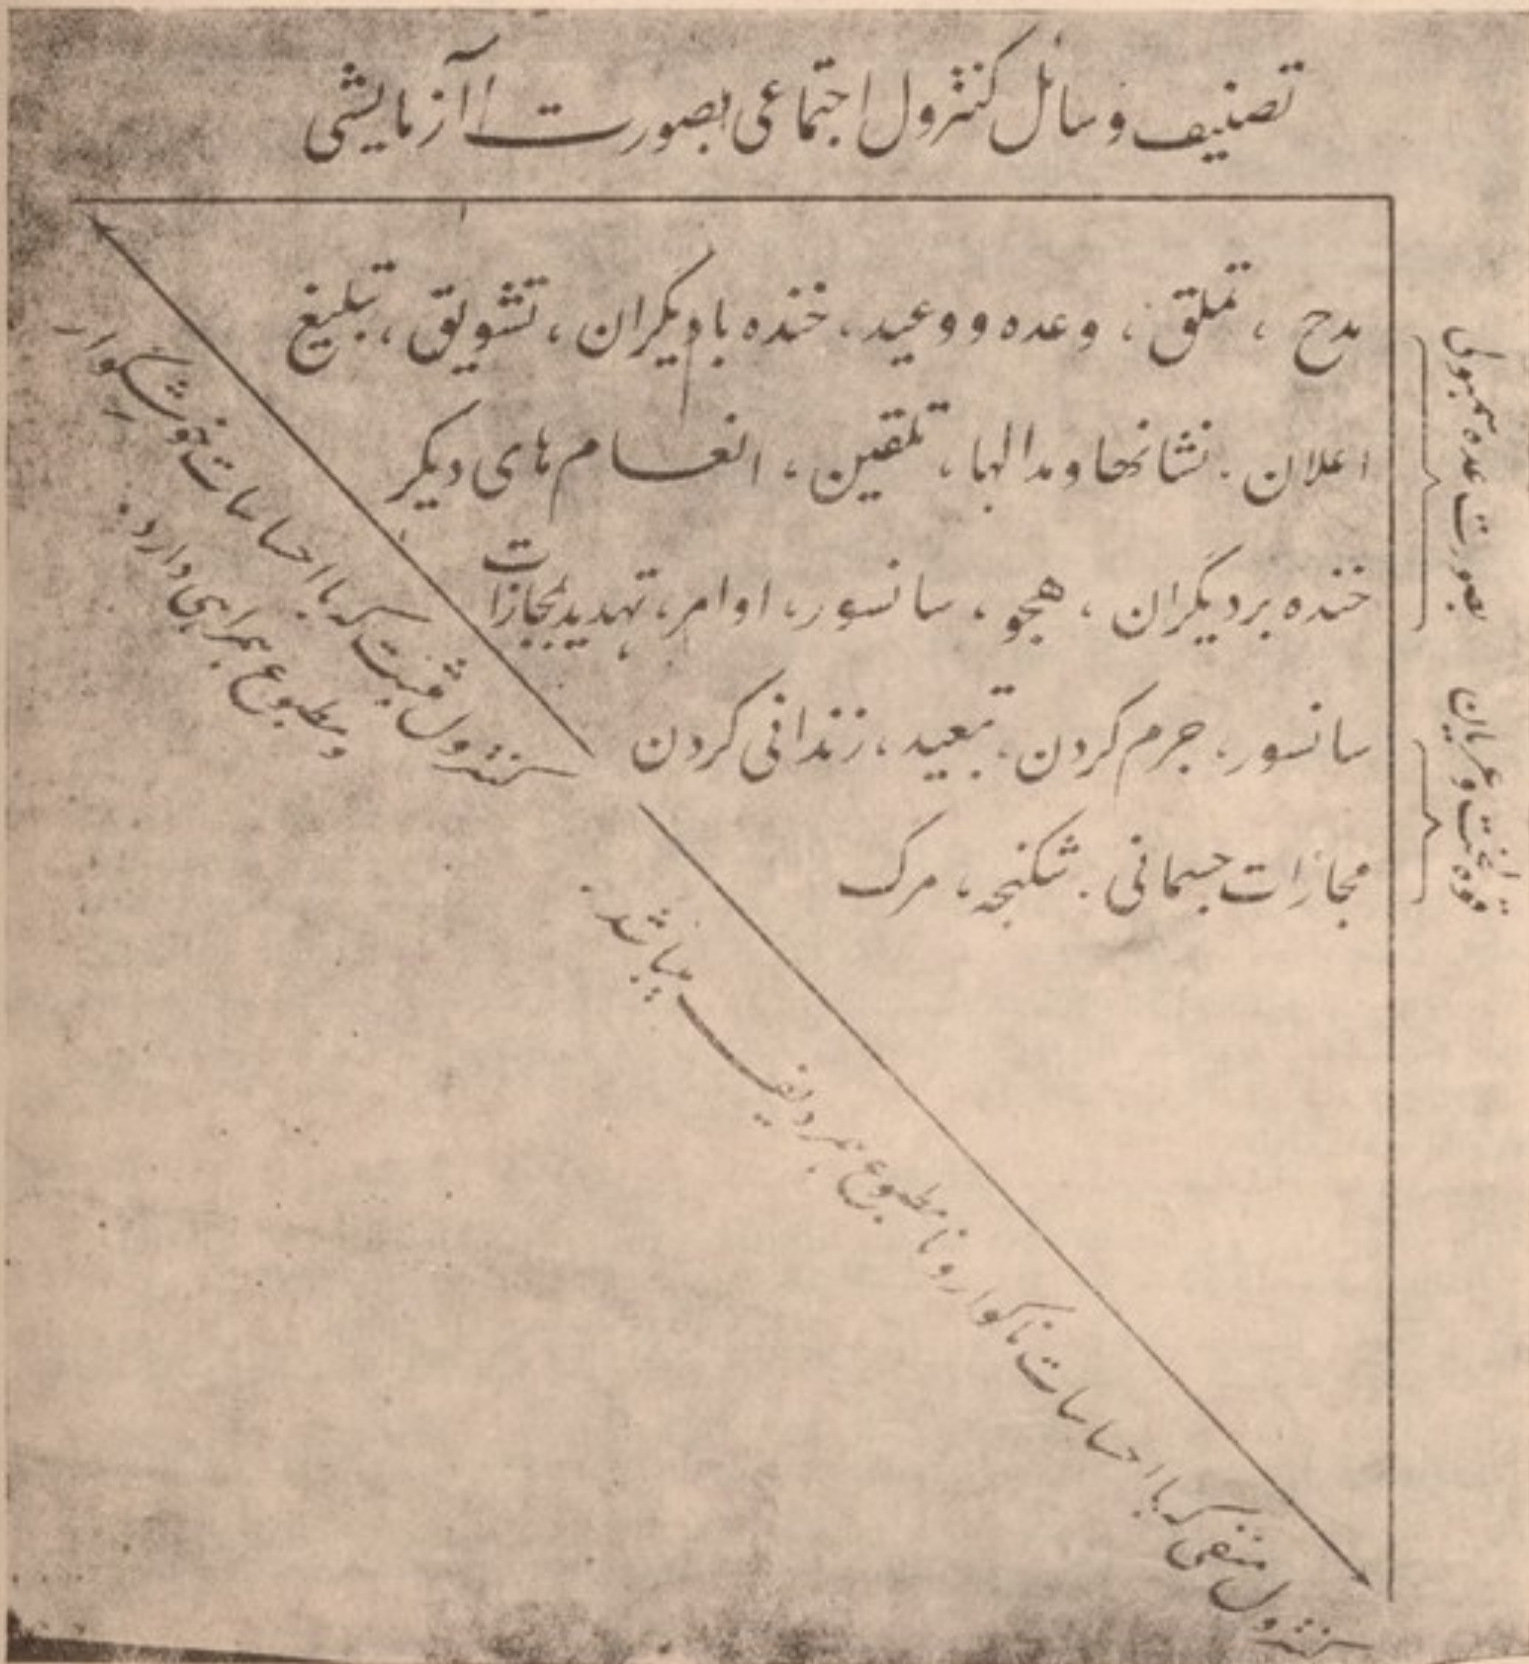 تصنیف وسائل کنترول اجتماعی بصورت آزمایشی
مدح ، تملق ، وعده ووعید ، خنده با دیگران ، تشویق ، تبلیغ
اعلان . نشانها ومدالها ، تلقین ، انعام های دیگر
خنده بر دیگران ، هجو ، سانسور ، اوامر ، تهدید مجازات
سانسور ، جرم کردن ، تبعید ، زندانی کردن
مجازات جسمانی . شکنجه ، مرگ
بصورت عمده سمبولی
قوه لخت و عریان
کنترول مثبت که با احساسات خوشگوار
ومطبوع همراهی دارد .
کنترول منفی که با احساسات ناگوار و نا مطبوع همردیف میباشد .